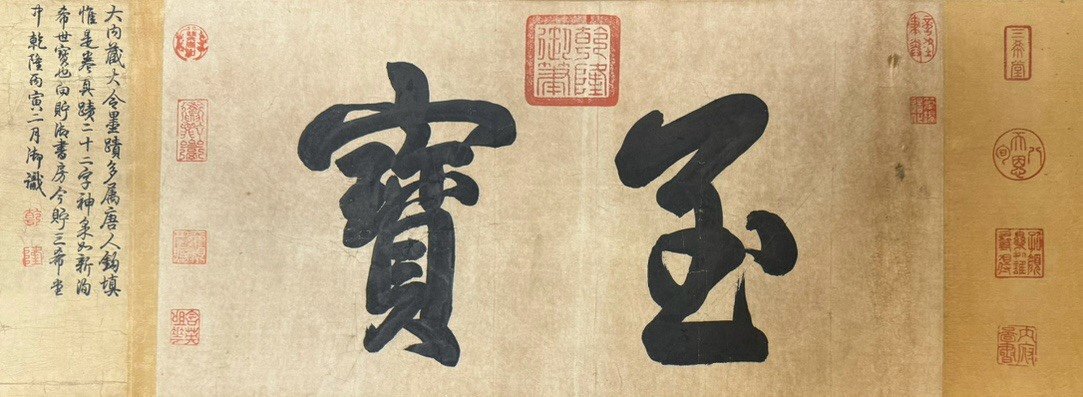 三希堂
內府圖書
至寶
乾隆御筆
大內藏大令墨蹟多屬唐人鈎填
惟是卷真蹟二十二字神采如新洵
希世寶也向貯御書房今貯三希堂
中乾隆丙寅二月御識
乾
隆